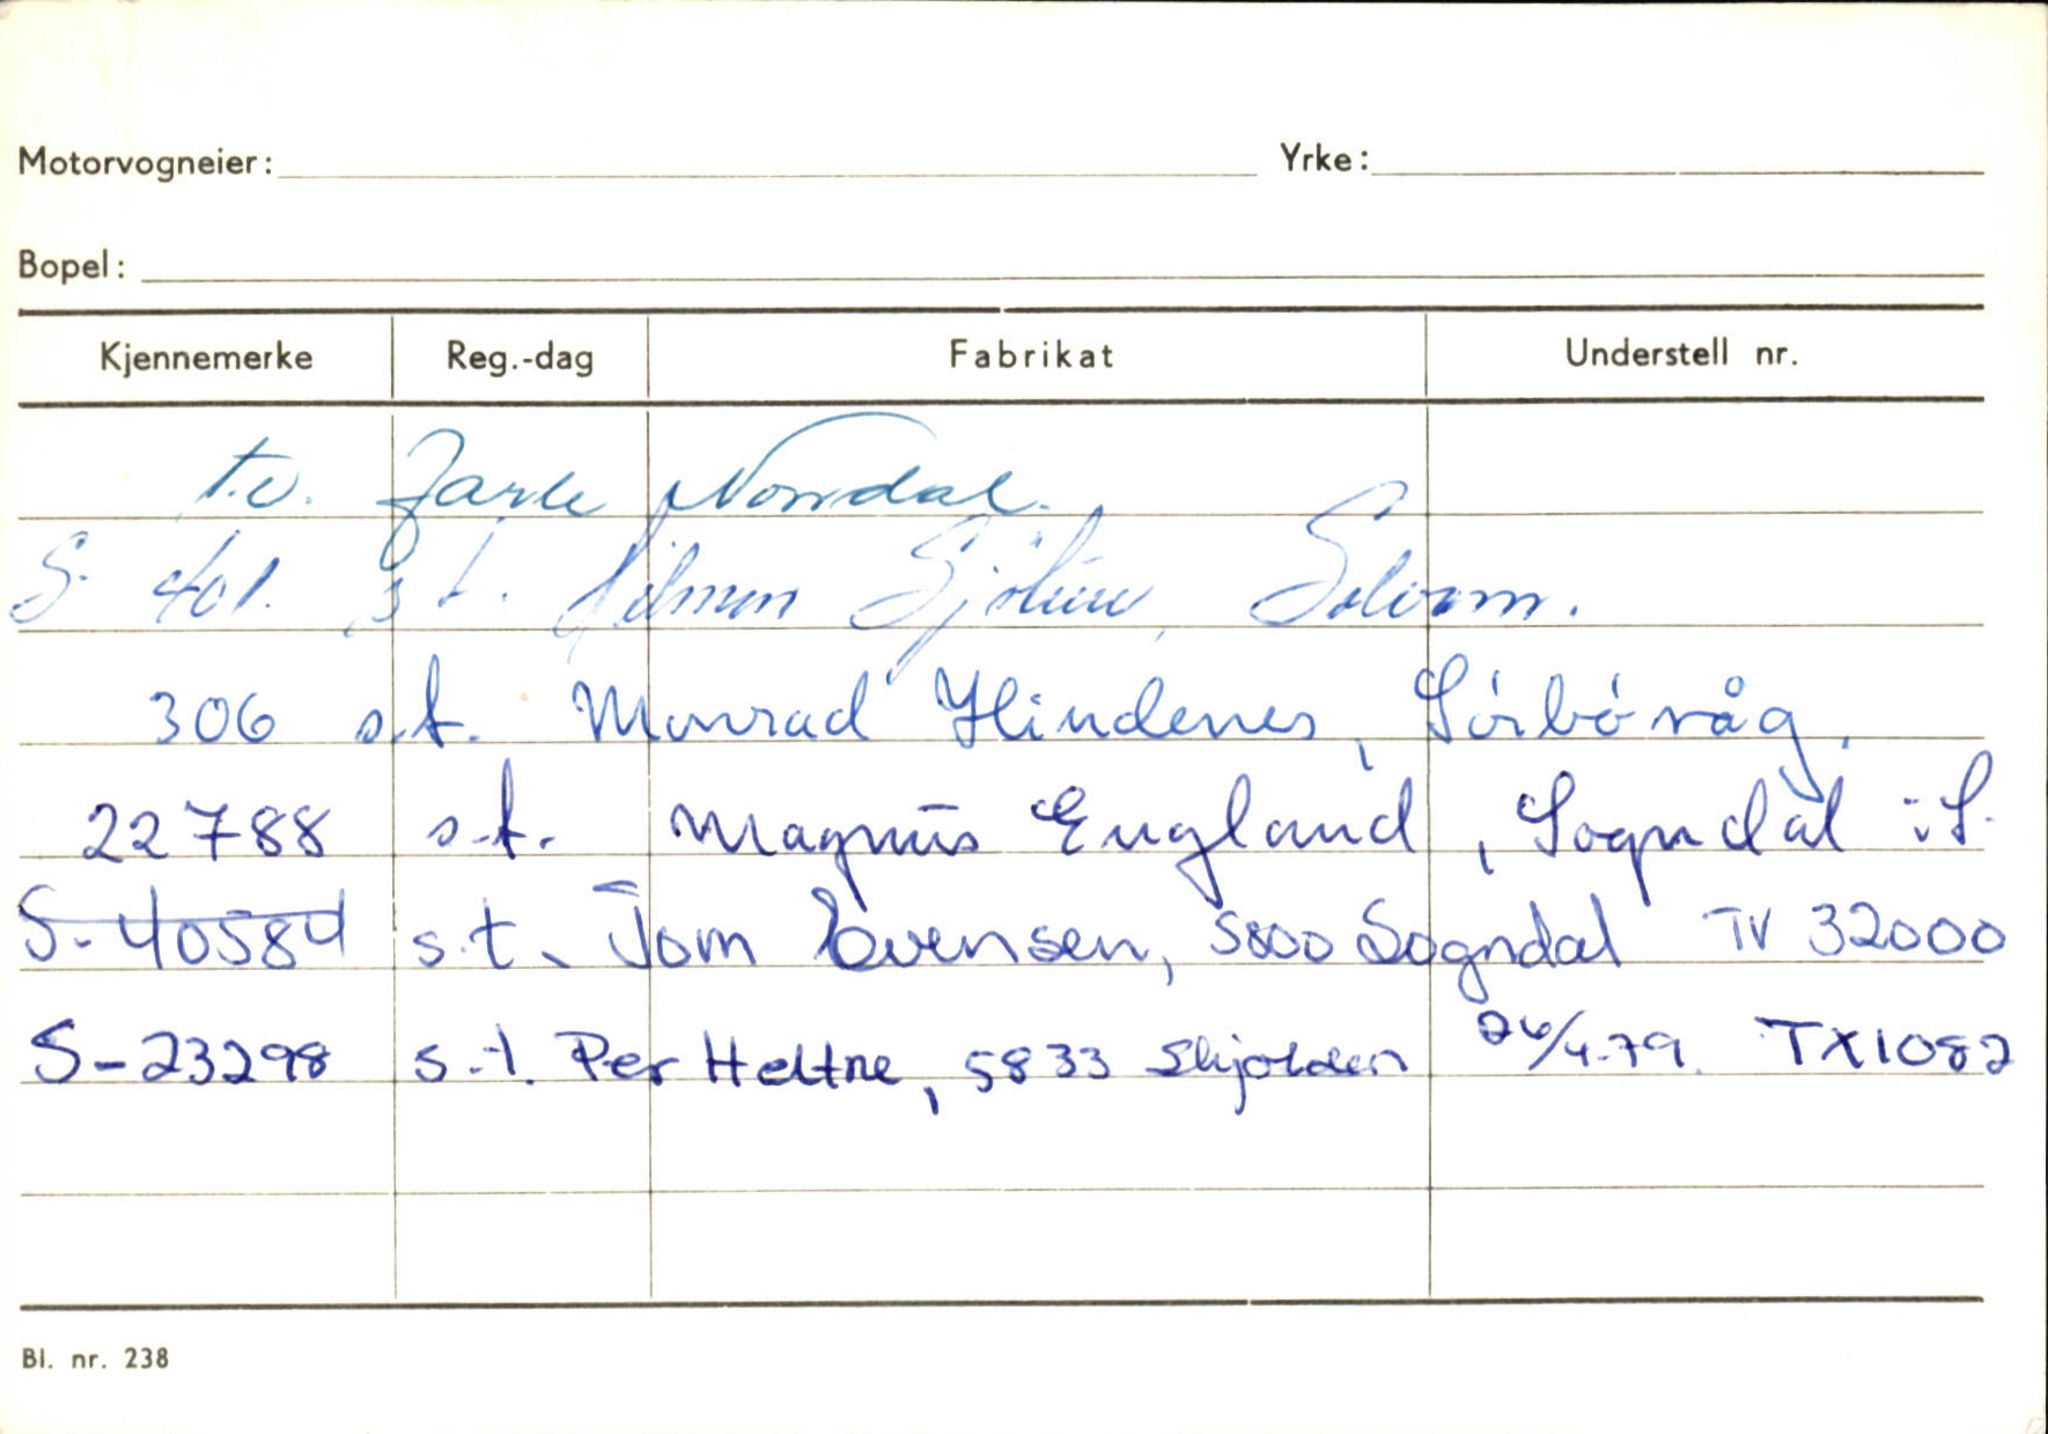 Motorvogneier: Yrke:
Bopel:
Kjennemerke Reg.-dag Fabrikat Understell nr.
t.v. Jarle Norrdal.
S- 401. s.t. Hilmon
306 s.t. Monrad Hindenes, Sørbøvåg.
22788 s.t. Magnus England, Sogndal i S.
S-40584 s.t. Tom Evensen, 5800 Sogndal TV 32000
S-23298 s.t. Per Heltne, 5833 Skjolden 26/4-79. TX1082
Bl. nr. 238